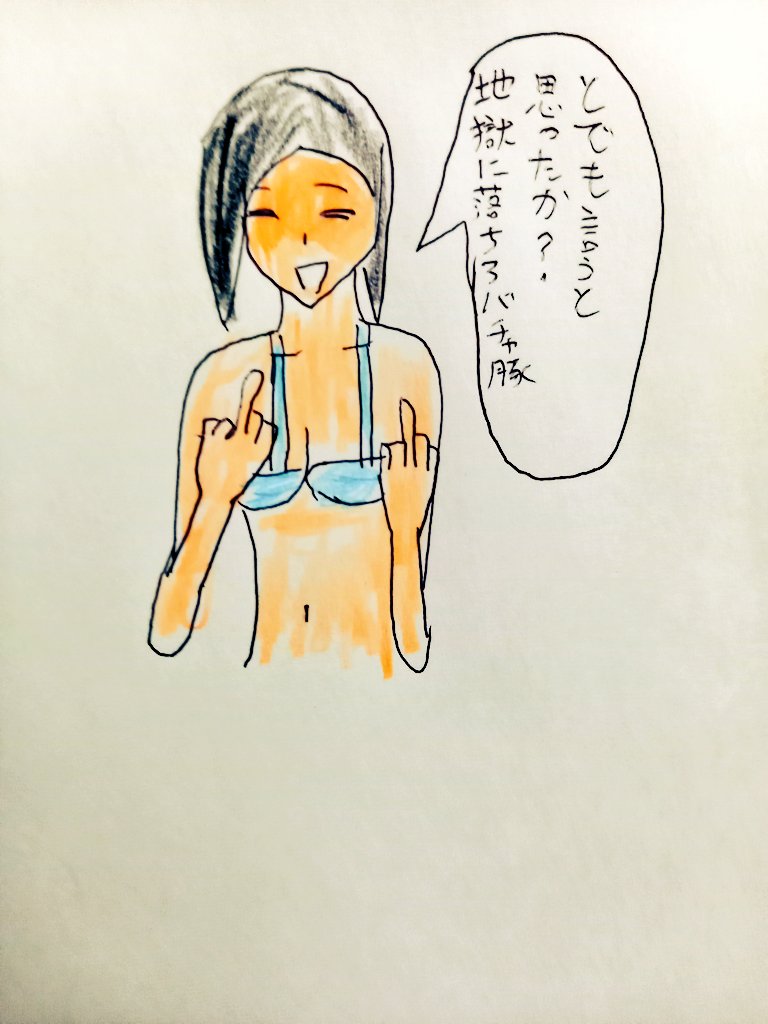 とでも言うと
思ったか?
地獄に落ちろバチャ豚